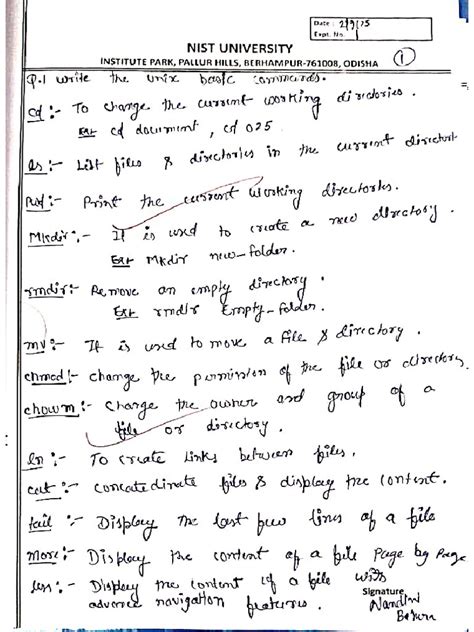 Date : 2/9/25
Expt. No. 1
NIST UNIVERSITY
INSTITUTE PARK, PALLUR HILLS, BERHAMPUR-761008, ODISHA
1
Q.1 write the unix basic commands.
cd :- To change the current working directories.
Ex:- cd document, cd 025
ls :- List files & directories in the current directori
Pwd :- Print the current working directories.
Mkdir :- It is used to create a new directory.
Ex:- Mkdir new-folder.
rmdir :- Remove an empty directory.
Ex:- rmdir Empty-folder.
mv :- It is used to move a file & directory.
chmod :- change the permission of the file or directory
chown :- Change the owner and group of a
file or directory.
ln :- To create links between files.
cat :- concatedinate files & display the content.
tail :- Display the last few lines of a file
More :- Display the content of a file Page by Page
less :- Display the content of a file with
advance navigation features.
Signature
Nandini